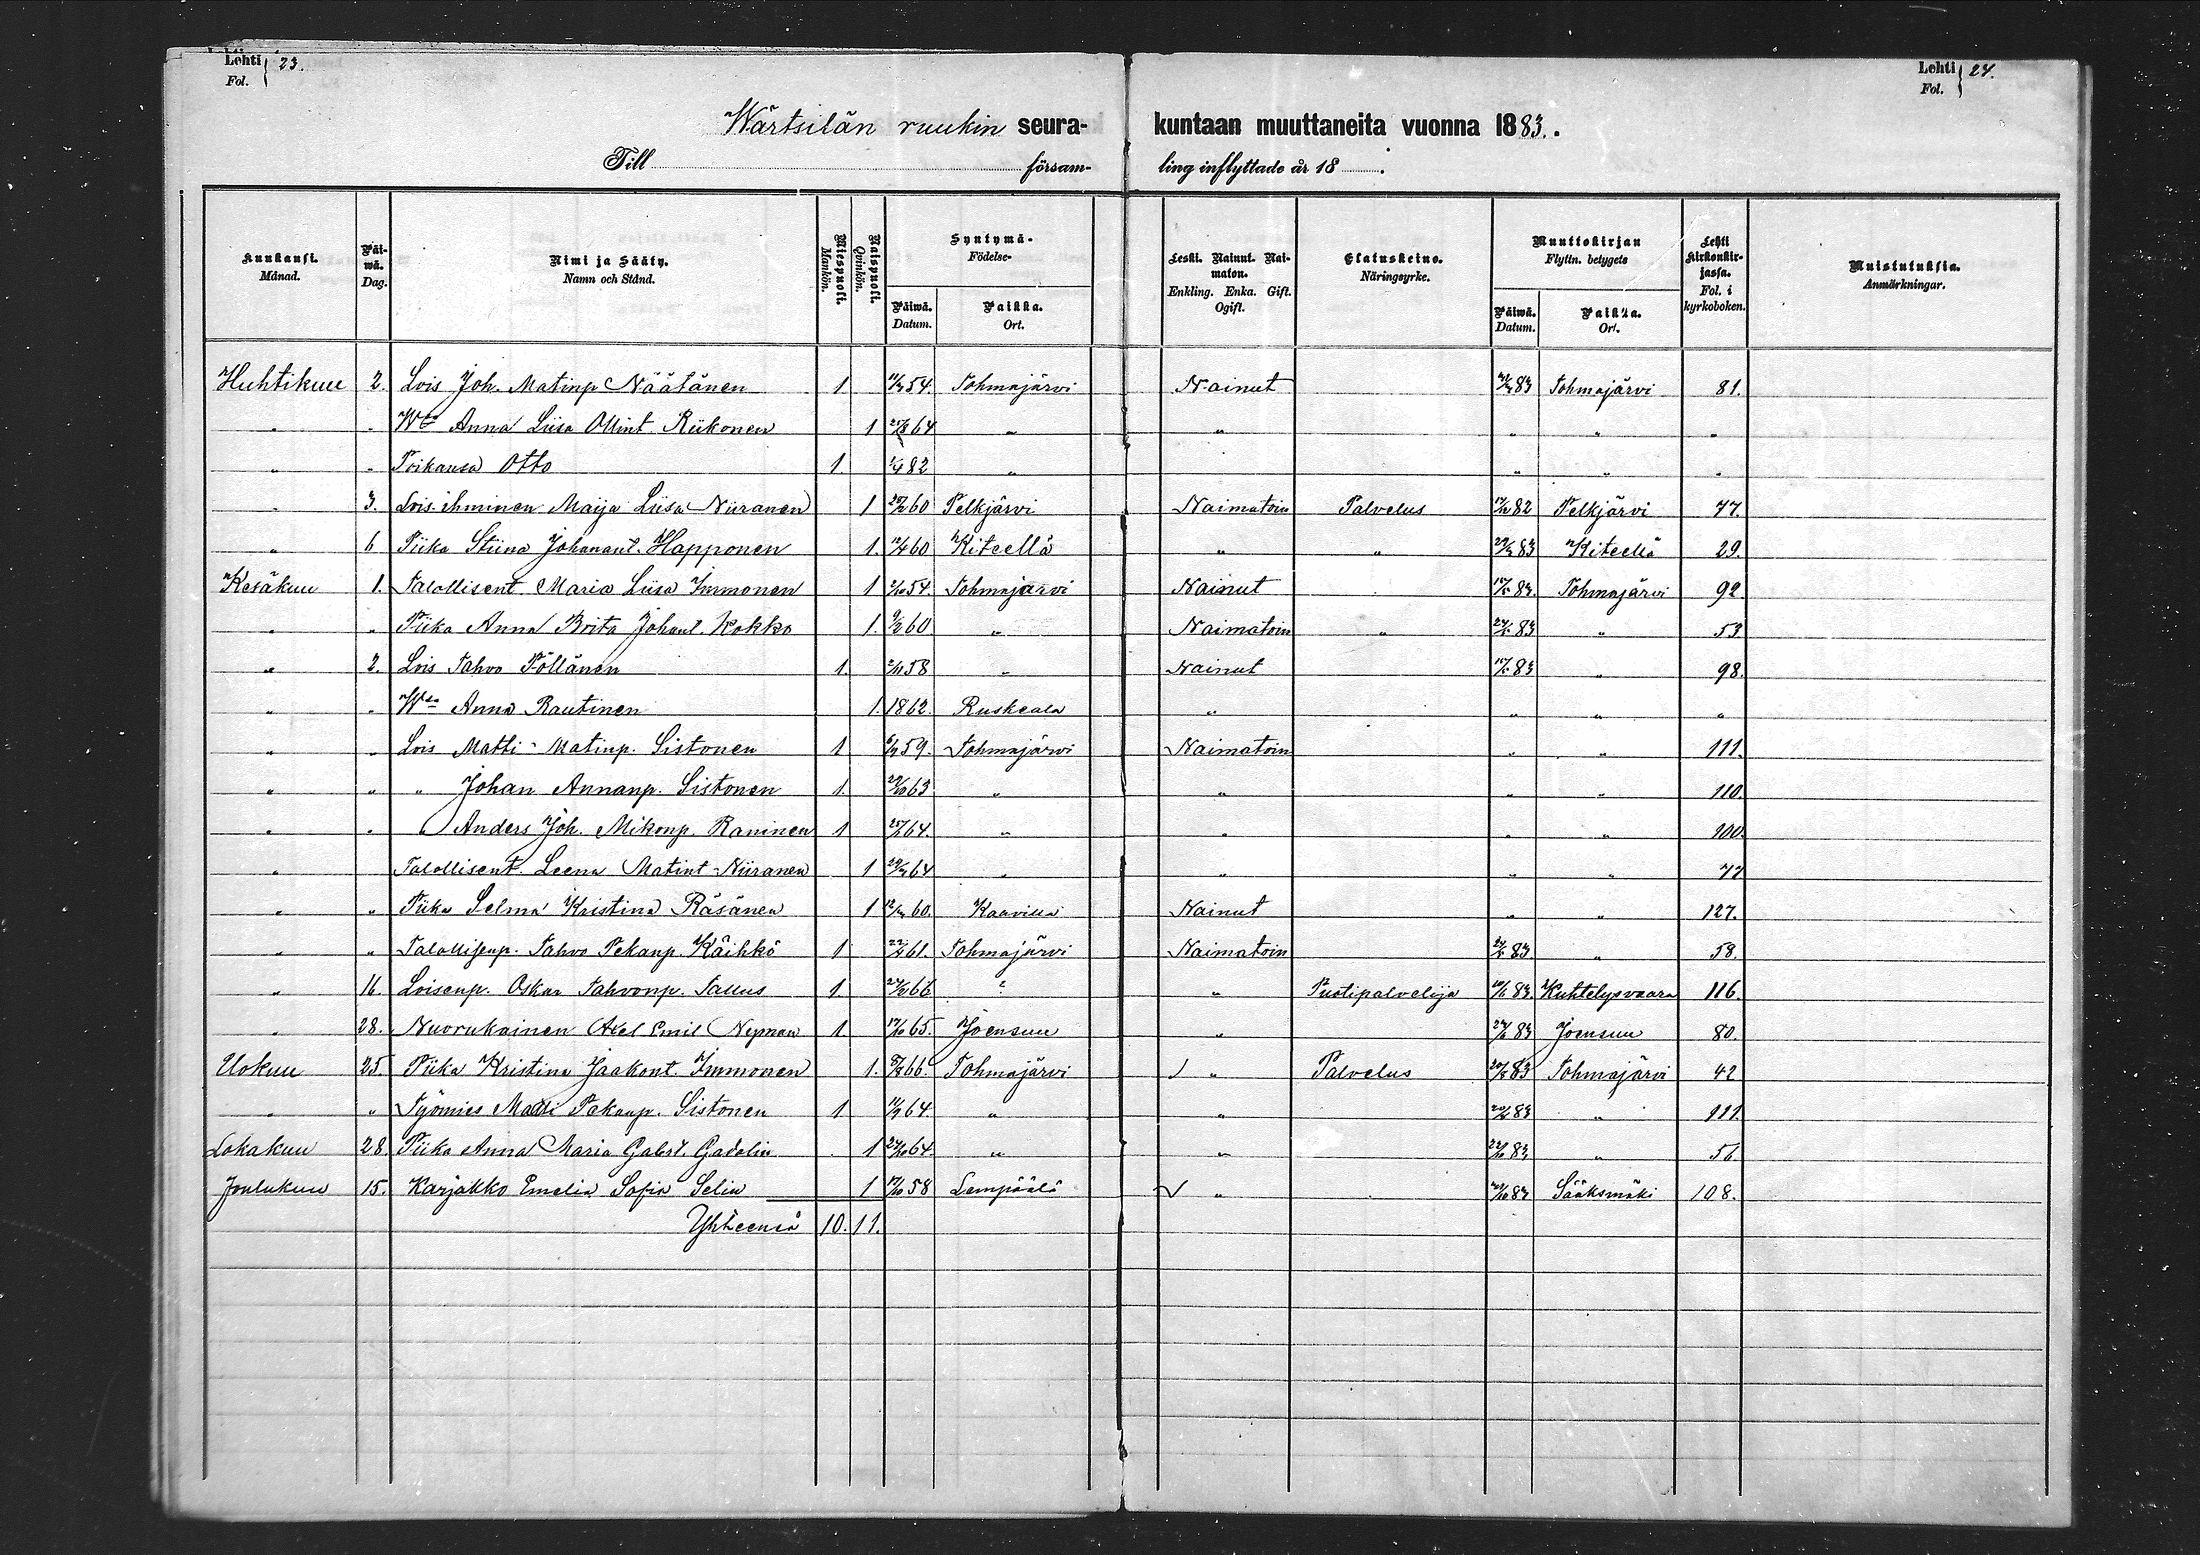 Lehti 23.
Fol.
Lehti 24.
Fol.
Wärtsilän ruukin seura- kuntaan muuttaneita vuonna 1883.
Till församling inflyttade år 18 .
Kuukausi. Månad. Päiwä. Dag. Nimi ja Sääty. Namn och Stånd. Miespuoli. Mankön. Naispuoli. Qvinkön. Syntymä- Födelse- Päiwä. Datum. Paikka. Ort. Leski. Nainut. Naimaton. Enkling. Enka. Gift. Ogift. Elatuskeino. Näringsyrke. Muuttokirjan Flyttn. betygets Päiwä. Datum. Paikka. Ort. Lehti kirkonkirjassa. Fol. i kyrkoboken. Muistutuksia. Anmärkningar.
Huhtikuu 2. Lois Joh. Matinp Näätänen 1 54. Tohmajärvi Nainut 83 Tohmajärvi 81.
" " Wmo Anna Liisa Ollint. Riikonen 1 64 " " " " "
" " Poikansa Otto 1 82 " " " "
" 3. Lois. ihminen Maija Liisa Niiranen 1 60 Pelkjärvi Naimatoin Palvelus 82 Pelkjärvi 77.
" 6 Piika Stiina Johanant. Happonen 1. 60 Kiteellä " " 83 Kiteellä 29.
Kesäkuu 1. Talollisent. Maria Liisa Immonen 1 54. Tohmajärvi Nainut 83. Tohmajärvi 92
" " Piika Anna Brita Johant. Kokko 1. 60 " Naimatoin " 83 " 53
" 2. Lois Tahvo Pöllänen 1. 58 " Nainut 83 " 98.
" " Wmo Anna Rautinen 1. 1862. Ruskeala " " " "
" " Lois Matti Matinp. Sistonen 1 59. Tohmajärvi Naimatoin " " 111.
" " " Johan Annanp. Sistonen 1. 63 " " " " 110.
" " " Anders Joh. Mikonp. Raninen 1 64. " " " " 100.
" Talollisent. Leena Matint Niiranen 1 64 " " " " 77
" " Piika Selma Kristina Räsänen 1 60. Kaavilla Nainut " " 127.
" " Talollisenp. Tahvo Pekanp. Käihkö 1 61. Tohmajärvi Naimatoin 83 " 58.
" 16. Loisenp. Oskar Tahvonp. Tallus 1. 66 ? " Puotipalvelija 83. Kuhtelysvaara 116.
" 28. Nuorukainen Axel Emil Nyman 1 65. Joensuu " 83 Joensuu 80.
Elokuu 25. Piika Kristina Jaakont. Immonen 1. 66. Tohmajärvi " Palvelus 83 Tohmajärvi 42
" " Työmies Matti Pekanp. Sistonen 1 64. " " 83 " 111.
Lokakuu 28. Piika Anna Maria Gabst. Gadolin 1 64. " " 83 " 56.
Joulukuu 15. Karjakko Emelia Sofia Selin 1 58 Lempäälä " 83 Sääksmäki 108.
Yhteensä 10. 11.